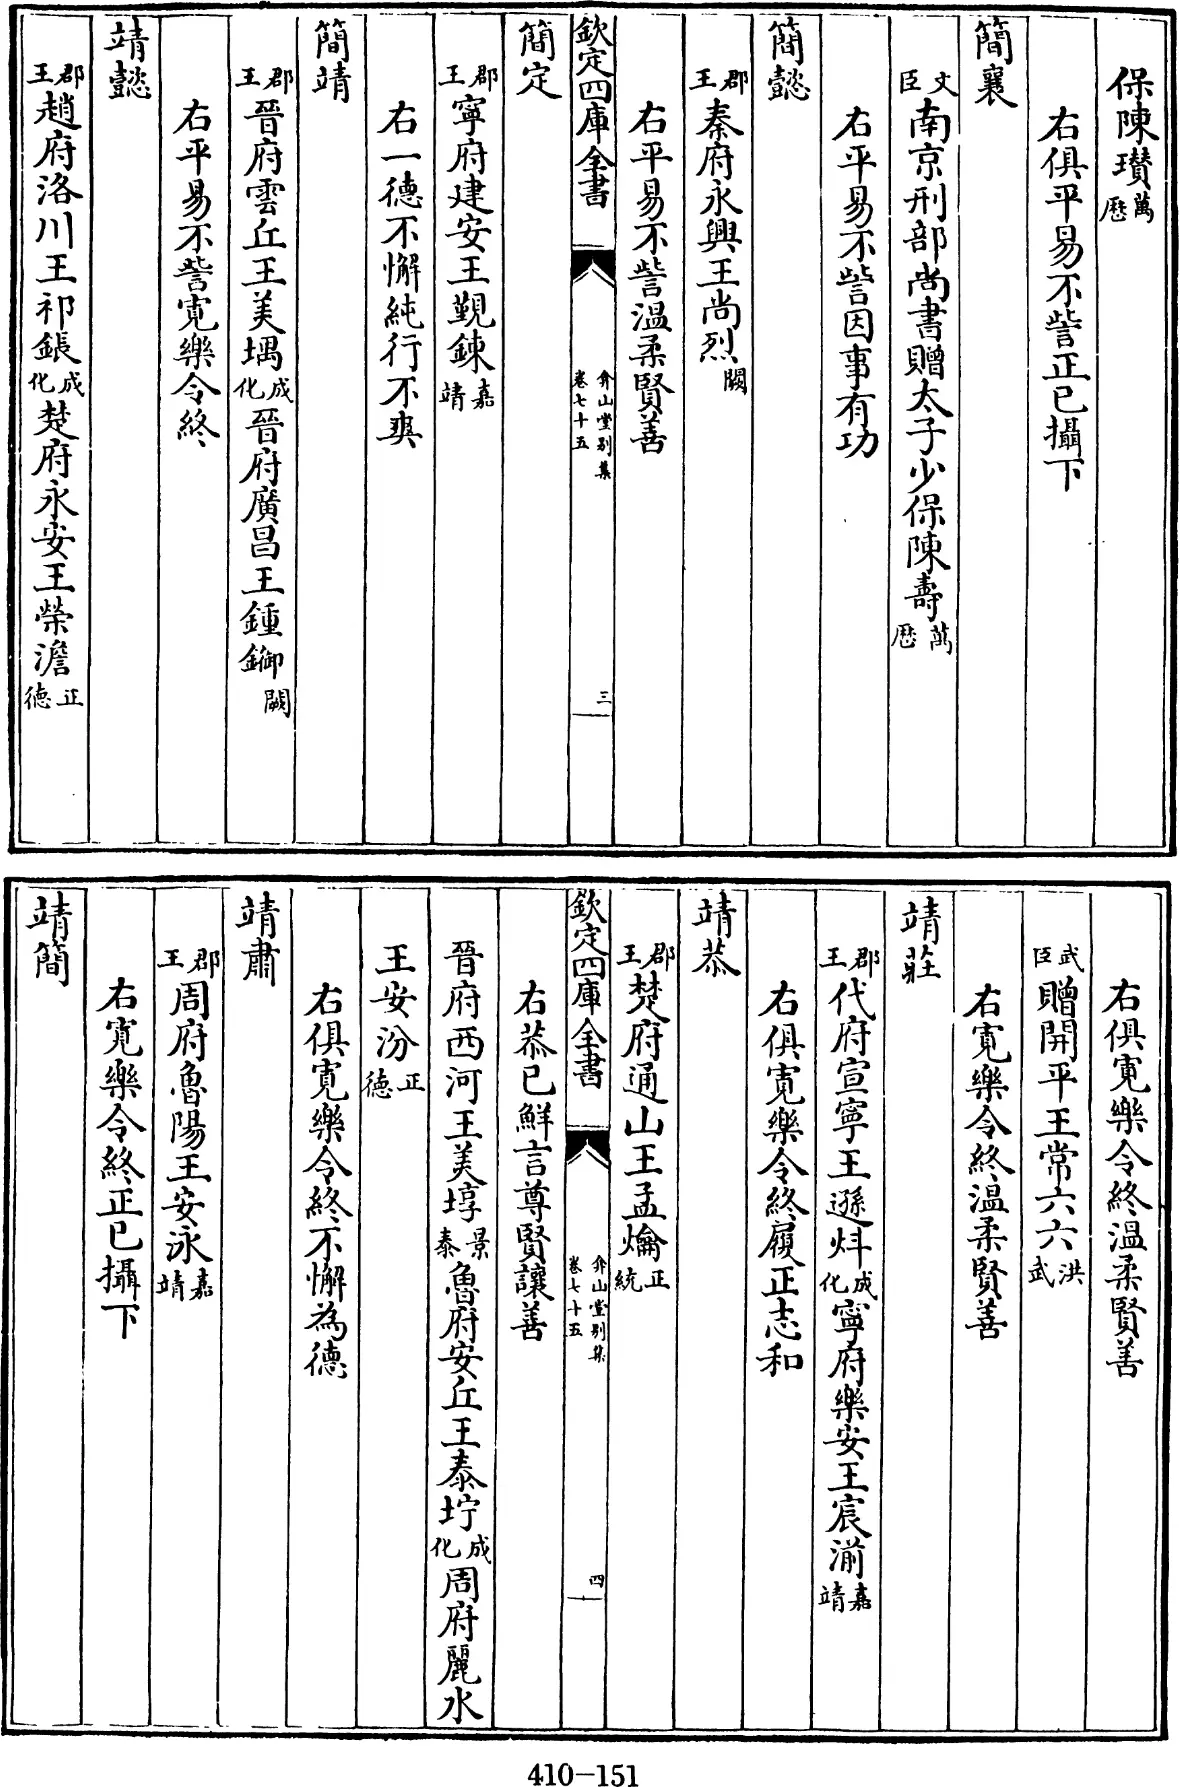 保陳瓚萬歷
右俱平易不訾正已攝下
簡襄
文臣南京刑部尚書贈太子少保陳壽萬歷
右平易不訾因事有功
簡懿
郡王秦府永興王尚烈闕
右平易不訾溫柔賢善
欽定四庫全書 弇山堂别集卷七十五 三
簡定
郡王寧府建安王覲鍊嘉靖
右一德不懈純行不爽
簡靖
郡王晉府雲丘王美堣成化晉府廣昌王鍾𨫋闕
右平易不訾寛樂令終
靖懿
郡王趙府洛川王祁鋹成化楚府永安王榮澹正德
右俱寛樂令終溫柔賢善
武臣贈開平王常六六洪武
靖莊
右寛樂令終溫柔賢善
郡王代府宣寧王遜炓成化寧府樂安王宸湔嘉靖
右俱寛樂令終履正志和
靖恭
郡王楚府通山王孟爚正統
欽定四庫全書 弇山堂别集卷七十五 四
右恭已鮮言尊賢讓善
晉府西河王美埻景泰魯府安丘王泰坾成化周府麗水
王安汾正德
右俱寛樂令終不懈為德
靖肅
郡王周府魯陽王安泳嘉靖
右寛樂令終正已攝下
靖簡
410-151